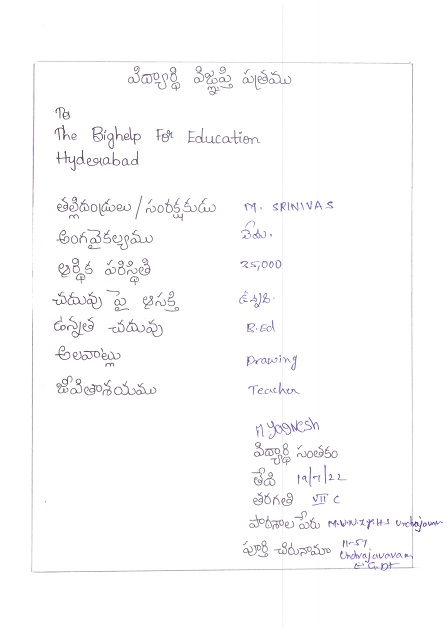 విద్యార్థి విజ్ఞప్తి పత్రము
To
The Bighelp For Education
Hyderabad
తల్లిదండ్రులు / సంరక్షకుడు M. SRINIVAS
అంగవైకల్యము లేదు.
ఆర్థిక పరిస్థితి 35,000
చదువు పై ఆసక్తి ఉన్నది.
ఉన్నత చదువు B.Ed
అలవాట్లు Drawing
జీవితాశయము Teacher
M Yognesh
విద్యార్థి సంతకం
తేది 19/7/22
తరగతి VII C
పాఠశాల పేరు
పూర్తి చిరునామా
E.G.Dt